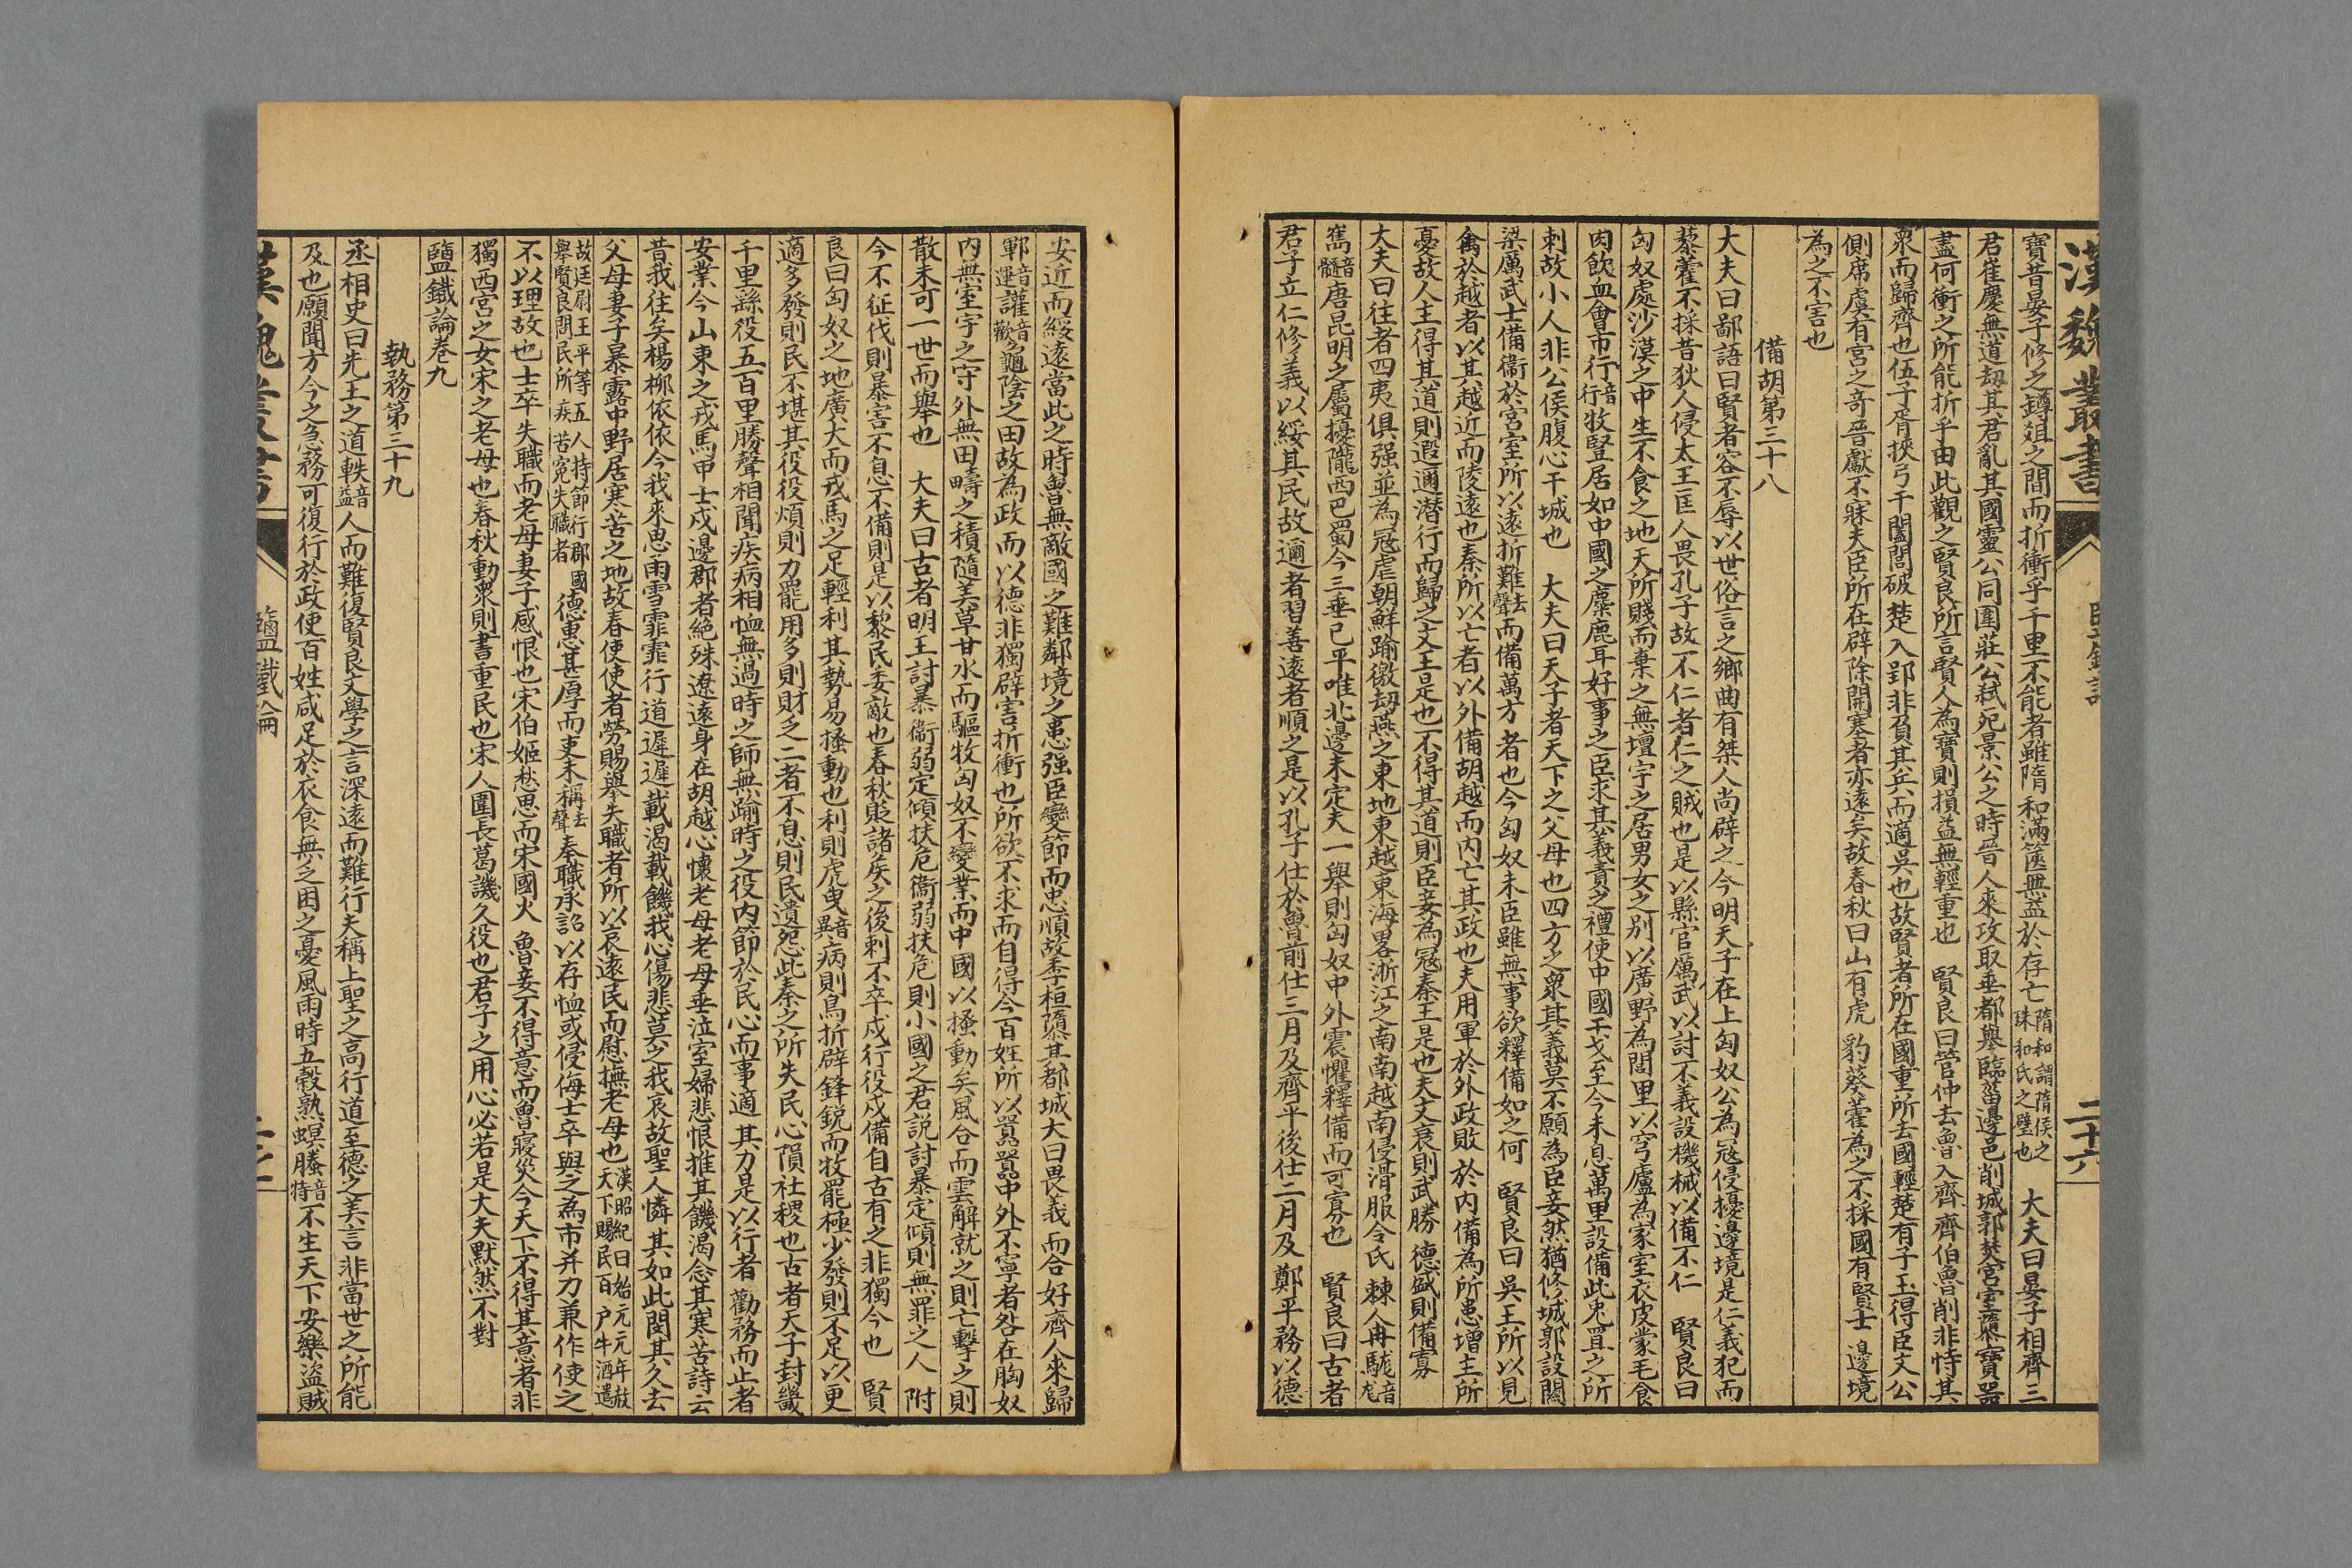 漢魏叢書
二十六
寶昔晏子修之罇俎之間而折衝乎千里不能者雖隋和滿篋無益於存亡隋和謂隋侯之珠和氏之璧也　大夫曰晏子相齊三
君崔慶無道刧其君亂其國靈公同圍莊公弒死景公之時晉人來攻取垂都舉臨菑邊邑削城郭焚宮室隳寶器
盡何衝之所能折乎由此觀之賢良所言賢人為寶則損益無輕重也　賢良曰管仲去魯入齊齊伯魯削非恃其
衆而歸齊也伍子胥挾弓干闔閭破楚入郢非負其兵而適吳也故賢者所在國重所去國輕楚有子玉得臣文公
側席虞有宮之奇晉獻不寐夫臣所在辟除開塞者亦遠矣故春秋曰山有虎豹葵藿為之不採國有賢士邊境
為之不害也
備胡第三十八
大夫曰鄙語曰賢者容不辱以世俗言之鄉曲有桀人尚辟之今明天子在上匈奴公為冦侵擾邊境是仁義犯而
藜藿不採昔狄人侵太王匡人畏孔子故不仁者仁之賊也是以縣官厲武以討不義設機械以備不仁　賢良曰
匈奴處沙漠之中生不食之地天所賤而棄之無壇宇之居男女之別以廣野為閭里以穹廬為家室衣皮蒙毛食
肉飲血會市行音行牧豎居如中國之麋鹿耳好事之臣求其義責之禮使中國干戈至今未息萬里設備此兎罝之所
刺故小人非公侯腹心干城也　大夫曰天子者天下之父母也四方之衆其義莫不願為臣妾然猶修城郭設關
梁厲武士備衞於宮室所以遠折難去聲而備萬方者也今匈奴未臣雖無事欲釋備如之何　賢良曰吳王所以見
禽於越者以其越近而陵遠也秦所以亡者以外備胡越而內亡其政也夫用軍於外政敗於內備為所患增主所
憂故人主得其道則遐邇潛行而歸之文王是也不得其道則臣妾為冦秦王是也夫文衰則武勝德盛則備寡
大夫曰往者四夷俱强並為冦虐朝鮮踰徼刧燕之東地東越東海畧浙江之南南越南侵滑服令氏棘人冉駹音尨
嶲音髓唐昆明之屬擾隴西巴蜀今三垂已平唯北邊未定夫一舉則匈奴中外震懼釋備而可寡也　賢良曰古者
君子立仁修義以綏其民故邇者習善遠者順之是以孔子仕於魯前仕三月及齊平後仕二月及鄭平務以德
安近而綏遠當此之時魯無敵國之難鄰境之患强臣變節而忠順故季桓隳其都城大曰畏義而合好齊人來歸
鄆音運讙音歡龜陰之田故為政而以德非獨辟害折衝也所欲不求而自得今百姓所以嚣嚣中外不寧者咎在胸奴
內無室宇之守外無田疇之積隨美草甘水而驅牧匈奴不變業而中國以搔動矣風合而雲解就之則亡擊之則
散未可一世而舉也　大夫曰古者明王討暴衞弱定傾扶危衞弱扶危則小國之君説討暴定傾則無罪之人附
今不征伐則暴害不息不備則是以黎民委敵也春秋貶諸矦之後刺不卒戍行役戍備自古有之非獨今也　賢
良曰匈奴之地廣大而戎馬之足輕利其勢易搔動也利則虎曳病音異則鳥折辟鋒鋭而牧罷極少發則不足以更
適多發則民不堪其役役煩則力罷用多則財乏二者不息則民遺怨此秦之所失民心隕社稷也古者天子封畿
千里繇役五百里勝聲相聞疾病相恤無過時之師無踰時之役內節於民心而事適其力是以行者勸務而止者
安業今山東之戎馬甲士戍邊郡者絶殊遼遠身在胡越心懷老母老母垂泣室婦悲恨推其饑渴念其寒苦詩云
昔我往矣楊柳依依今我來思雨雪霏霏行道遲遲載渴載饑我心傷悲莫之我哀故聖人憐其如此閔其久去
父母妻子暴露中野居寒苦之地故春使使者勞賜舉失職者所以哀遠民而慰撫老母也漢昭紀曰始元元年赦天下賜民百户牛酒遣
故廷尉王平等五人持節行郡國舉賢良問民所疾苦寃失職者德惠甚厚而吏未稱去聲奉職承詔以存恤或侵侮士卒與之為市并力兼作使之
不以理故也士卒失職而老母妻子感恨也宋伯姬愁思而宋國火魯妾不得意而魯寢災今天下不得其意者非
獨西宮之女宋之老母也春秋動衆則書重民也宋人圍長葛譏久役也君子之用心必若是大夫默然不對
鹽鐵論卷九
執務第三十九
丞相史曰先王之道軼音益人而難復賢良文學之言深遠而難行夫稱上聖之高行道至德之美言非當世之所能
及也願聞方今之急務可復行於政使百姓咸足於衣食無乏困之憂風雨時五穀熟螟螣音特不生天下安樂盗賊
漢魏叢書
鹽鐵論